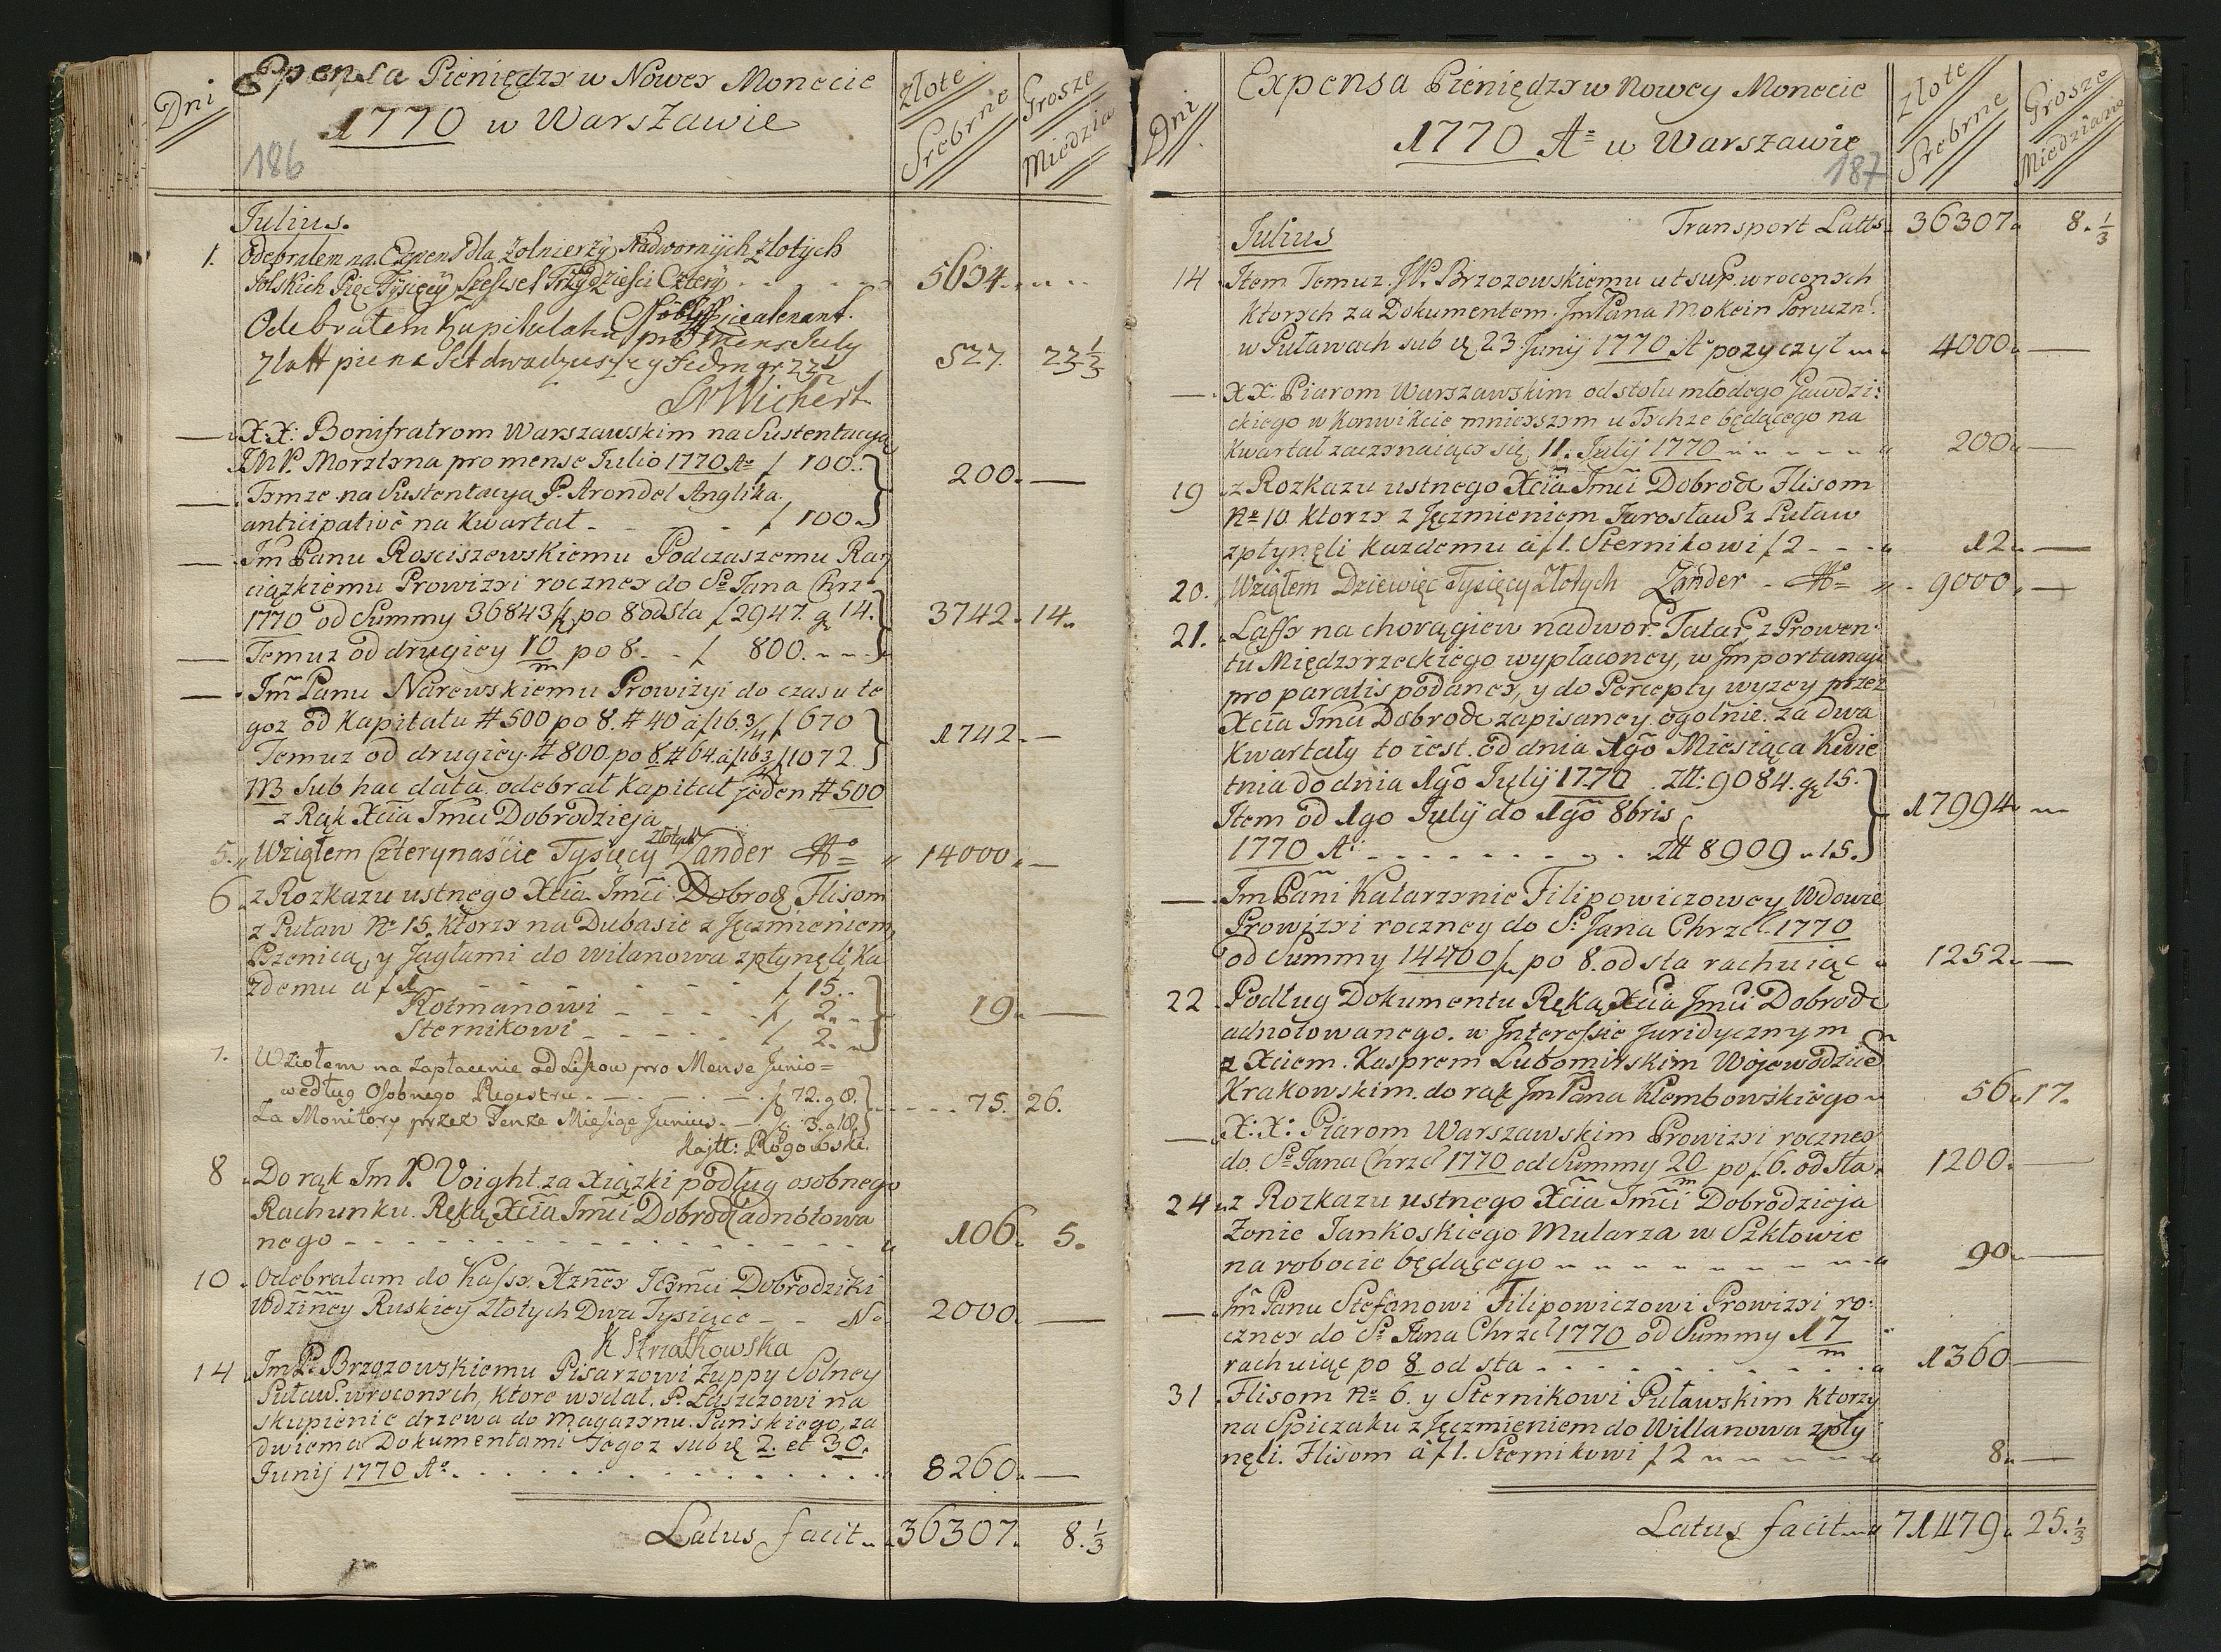 Dni
Expensa Pieniędzy w Nowey Monecie
1770 w Warszawie
Złote Srebrne
Grosze Miedzia
186
Julius.
1. Odebrałem na Expens dla Zołnierzy Nadwornych złotych
Polskich Pięc Tysięcy Szescset Trzydziesci Cztery 5634.
Odebrałem Kapitulatu pro Mens July
Złott pięc Set dwadziesczy Sedm gr 23 1/3 527. 23 1/3
Wichert
— X.X: Bonifratrom Warszawskim na Sustentacyą
JMP. Morztyna pro mense Julio 1770 Ao f 100.
— Tymze na Sustentacyą P. Arondel Anglika 200. —
anticipativè na Kwartał - - - f 100.
— Jm Panu Rosciszewskiemu Podczaszemu Ra
ciązkiemu Prowizyi roczney do So Jana Chrz
1770 od Summy 36843 f. po 8 od sta f 2947. g 14. 3742. 14.
— Temuz od drugiey 10/m po 8 - - f 800. - -
— Jm Panu Narewskiemu Prowizyi do czasu te
goz od Kapitału # 500 po 8. # 40 a f 16. 3/4 f 670
Temuz od drugiey # 800. po 8. # 64. a f 16 3/4 f 1072. 1742. —
NB Sub hac data odebrał Kapitał jeden # 500
z Rąk Xcia Jmci Dobrodzieja
5. Wziąłem Czterynaście Tysięcy złotych Zander 14000. —
6. z Rozkazu ustnego Xcia Jmci Dobrodz Flisom
z Puław No 15. Ktorzy na Dubasie z Jęczmieniem,
Pzenicą, y Jagłami do wilanowa zpłynęli Ka
zdemu a f 1 - - - f 15.
Rotmanowi - - - f 2. 19. —
Sternikowi - - - f 2.
7. Wziołem na Zapłacenie od Listow pro Mense Junio
według Osobnego Regestru - - - f 72. g 8.
Za Monitory przez Tenze Miesiąc Junius. - f 3. g 18. 75. 26.
Rogowski.
8. Do rąk Jm P. Voight. za Xiązki podług osobnego
Rachunku. Ręką Xcia Jmci Dobrodz adnotowa
nego - - - 106. 5.
10. Odebrałam do Kassy Xzney Jejmci Dobrodziki
Wdziney Ruskiey Złotych Dwa Tysiące - - 2000. —
K Strzałkowska
14. Jm P. Brzozowskiemu Pisarzowi Zuppy Solney
Puław. wroconych, ktore wydał. P. Łaszczowi na
skupienie drzewa do magazynu. Panskiego, za
dwiema Dokumentami Jegoz sub 2. et 30.
Junij 1770 Ao. - - - 8260. —
Latus facit 36307. 8. 1/3
Dni
Expensa Pieniędzy w Nowey Monecie
1770 Ao w Warszawie
Złote Srebrne
Grosze Miedziane
187
Julius Transport Latts 36307. 8. 1/3
14. Item Temuz JP. Brzozowskiemu ut sup. wroconych
Ktorych za Dokumentem Jm Pana Mokein Poruczn.
w Puławach sub 23 Junij 1770 Ao pozyczył 4000. —
— XX: Piarom Warszawskim od stołu młodego Gawdzi:
ckiego w Konwikcie mnieyszym u Tychze będącego na
Kwartał zaczynaiący się 11. Julij 1770 200. —
19. z Rozkazu ustnego Xcia Jmci Dobrodz Flisom
No 10 Ktorzy z Jęczmieniem Jarosław z Puław
zpłynęli Kazdemu a f 1. Sternikowi f 2 - - 12. —
20. Wziąłem Dziewięc Tysięcy Złotych Zander 9000. —
21. Laffy na chorągiew nadwor. Tatar. z Prowen
tu Międzyrzeckiego wypłaconey, w Importancyi
pro paratis podaney, y do Percepty wyzey przez
Xcia Jmci Dobrodz zapisaney ogolnie. za dwa
Kwartały to iest. od dnia 1go Miesiąca Kwie
tnia do dnia 1go Julij 1770 Złł: 9084. g 15.
Item od 1go Julij do 1go 8bris 17994. —
1770 Ao - - - Złł 8909. 15.
— Jm Pani Katarzynie Filipowiczowey Wdowie
Prowizyi roczney do S. Jana Chrzcl. 1770
od Summy 14400 f. po 8. od sta rachuiąc 1252. —
22. Podług Dokumentu Ręką Xcia Jmci Dobrodz
adnotowanego. w Interessie Juridycznym
z Xciem. Kasprem Lubomirskim Wojewodzicē
Krakowskim. do rąk Jm Pana Klembowskiego 56. 17.
— X:X: Piarom Warszawskim Prowizyi roczney
do. So Jana Chrzcl 1770 od Summy 20/m po f 6. od sta. 1200. —
24. z Rozkazu ustnego Xcia Jmci Dobrodzieja
Zonie Jankoskiego Mularza w Szkłowie
na robocie będącego 90. —
— Jm Panu Stefanowi Filipowiczowi Prowizyi ro:
czney do S. Jana Chrzcl 1770 od Summy 17/m
rachuiąc po 8 od sta - - - 1360 —
31. Flisom No 6. y Sternikowi Puławskim Ktorzy
na Spiczaku z Jęczmieniem do Willanowa zpły
nęli. Flisom a f 1. Sternikowi f 2 8. —
Latus facit 71479. 25. 1/3